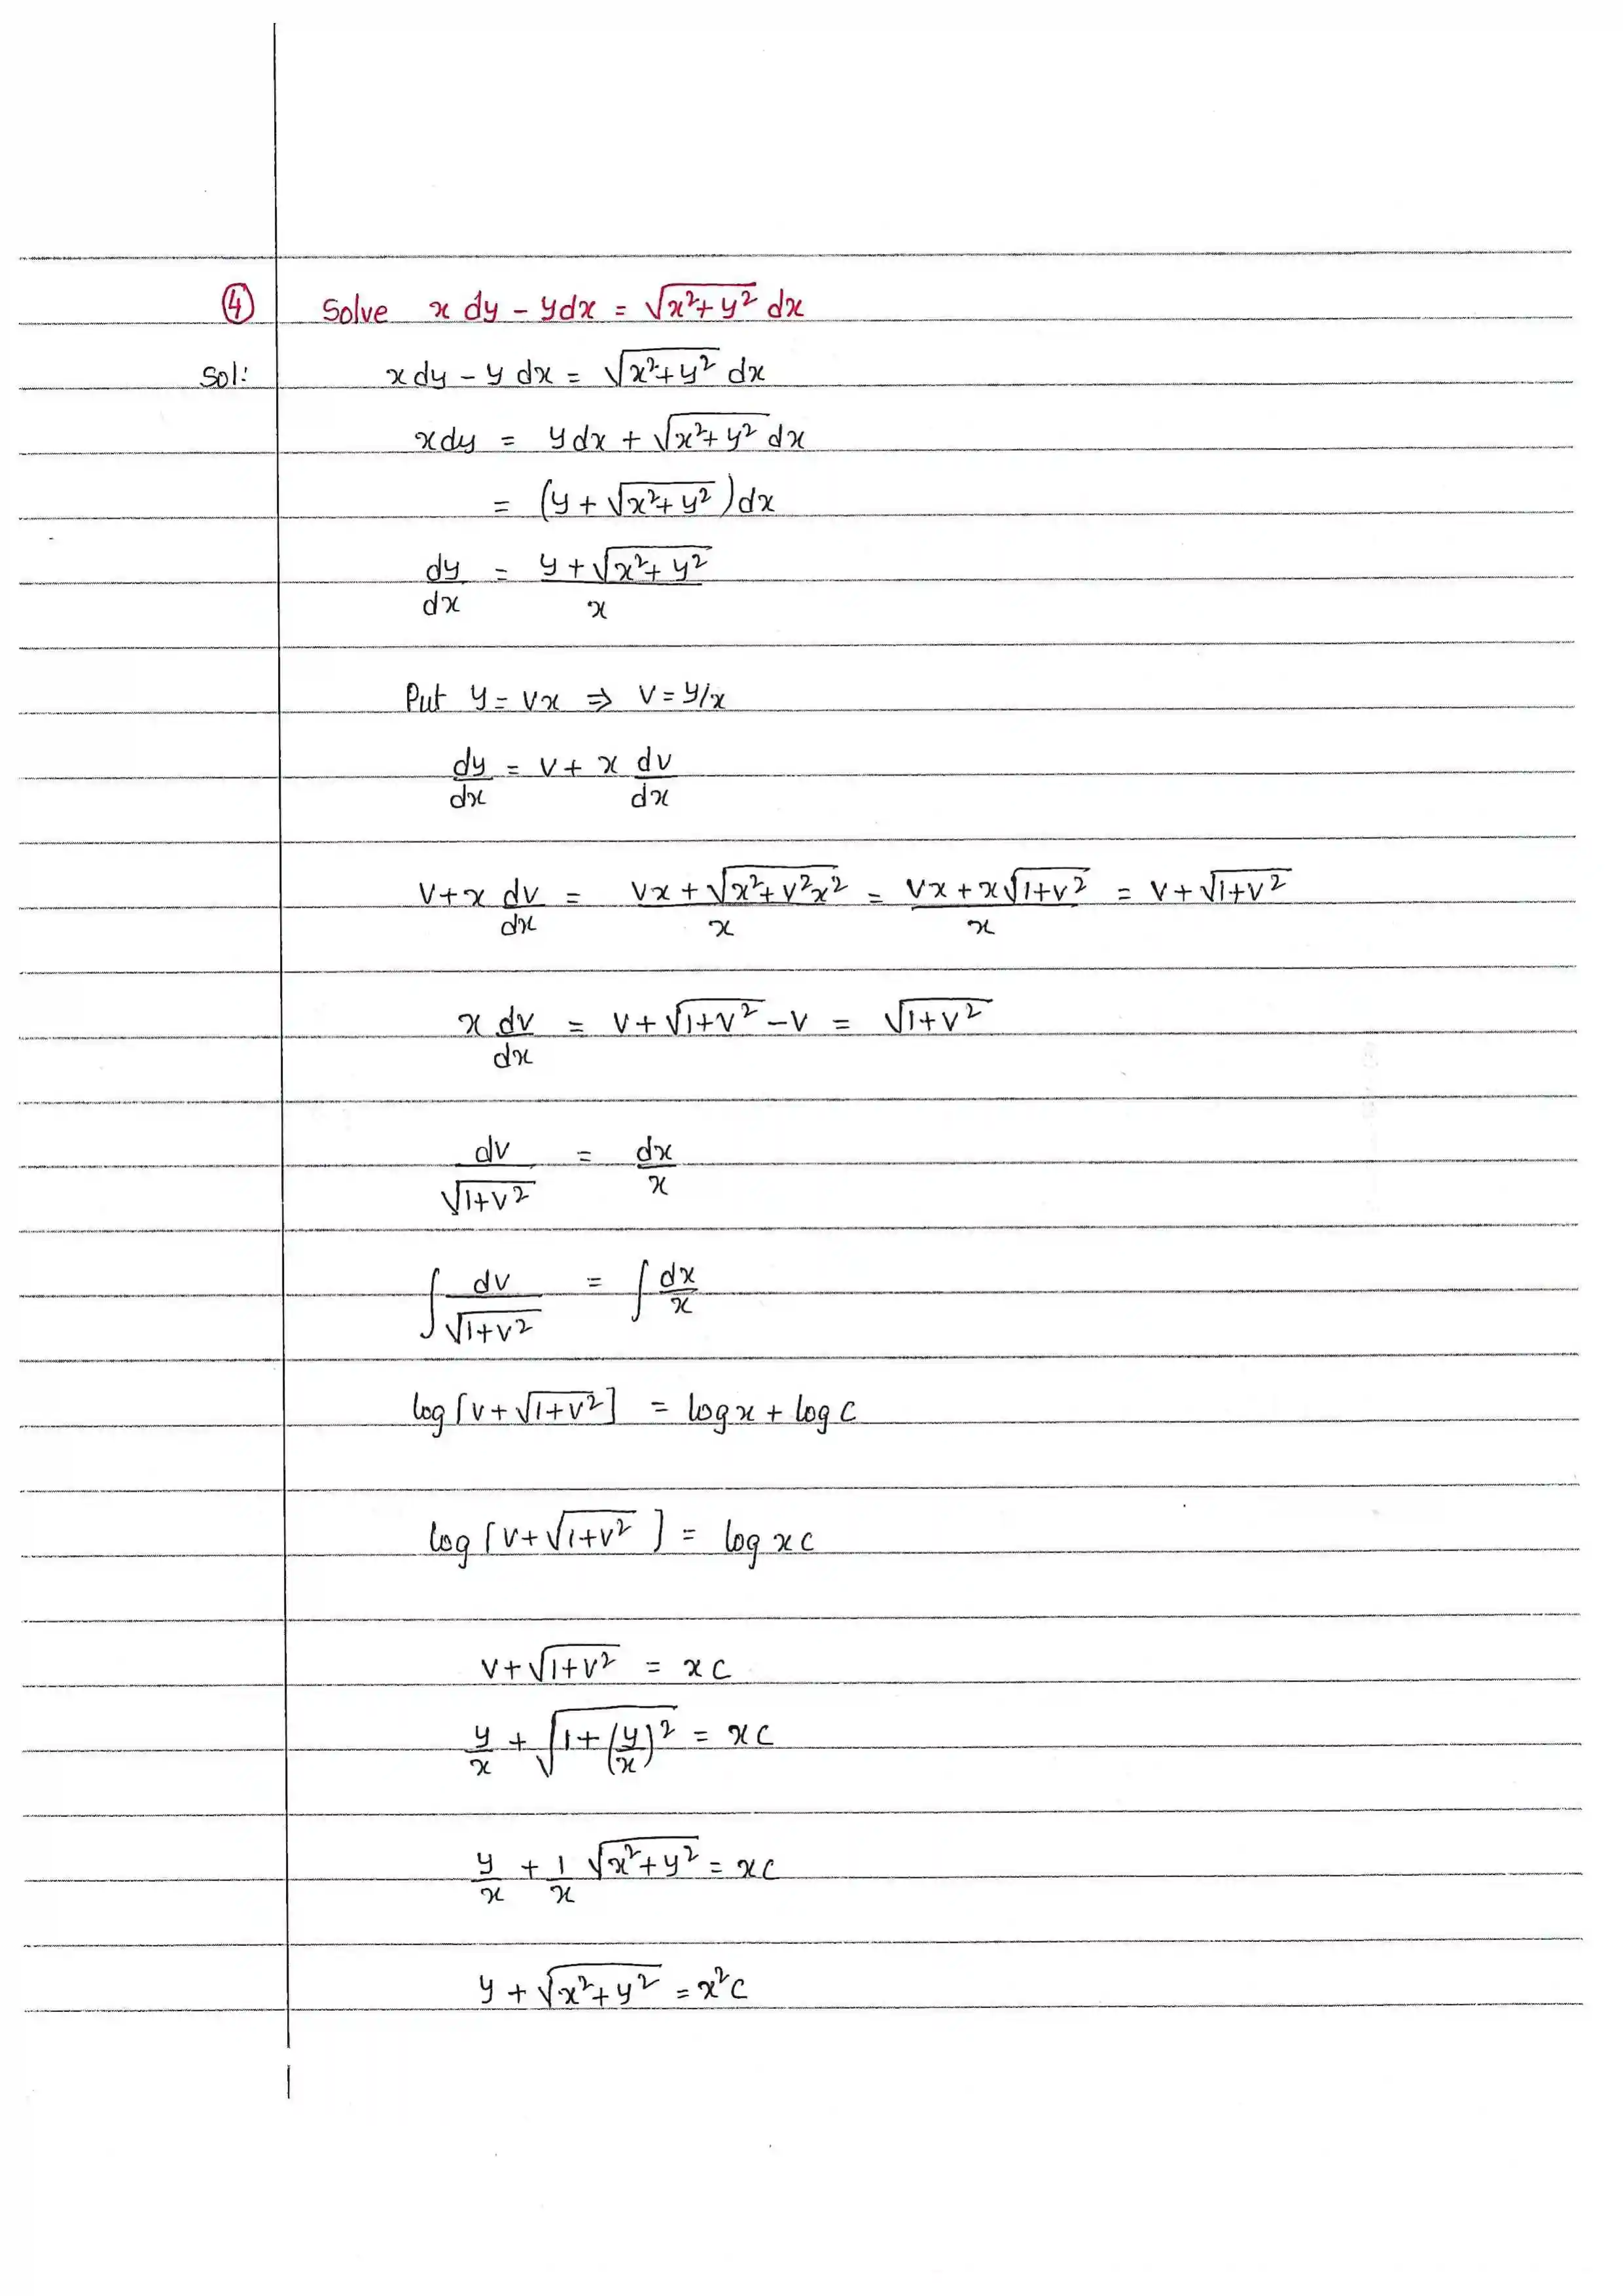 ④ Solve x dy - ydx = √(x²+y²) dx
Sol: x dy - y dx = √(x²+y²) dx
x dy = y dx + √(x²+y²) dx
= (y + √(x²+y²)) dx
dy/dx = (y + √(x²+y²))/x
Put y = vx ⇒ v = y/x
dy/dx = v + x dv/dx
v + x dv/dx = (vx + √(x²+v²x²))/x = (vx + x√(1+v²))/x = v + √(1+v²)
x dv/dx = v + √(1+v²) - v = √(1+v²)
dv/√(1+v²) = dx/x
∫ dv/√(1+v²) = ∫ dx/x
log [v + √(1+v²)] = log x + log c
log [v + √(1+v²)] = log xc
v + √(1+v²) = xc
y/x + √(1+(y/x)²) = xc
y/x + 1/x √(x²+y²) = xc
y + √(x²+y²) = x²c